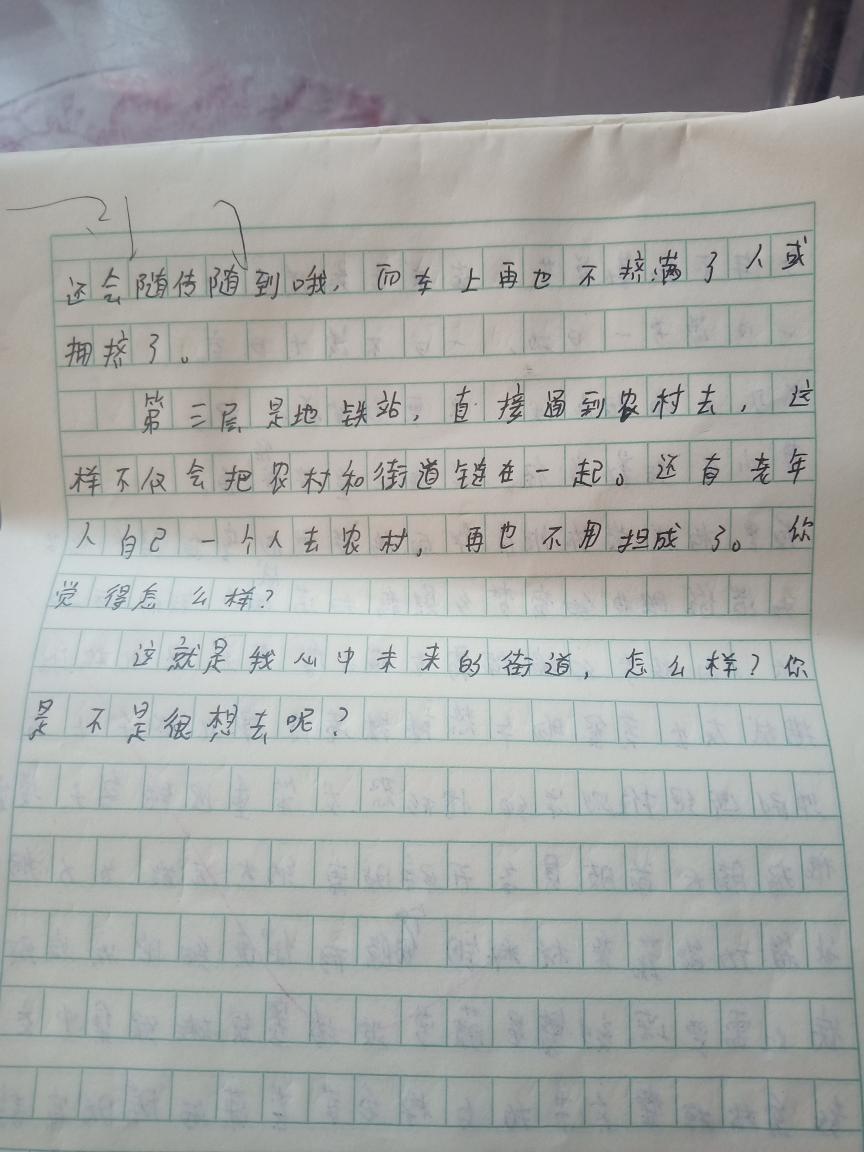 还会随传随到哦，而车上再也不挤满了人或
拥挤了。
第三层是地铁站，直接通到农村去，这
样不仅会把农村和街道链在一起。还有老年
人自己一个人去农村，再也不用担成了。你
觉得怎么样？
这就是我心中未来的街道，怎么样？你
是不是很想去呢？